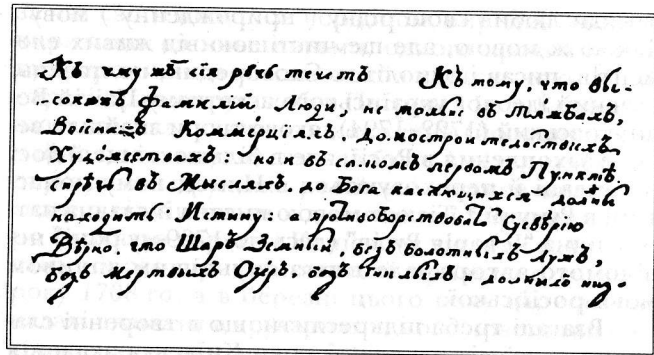 Къ чему жъ сія рѣчь течетъ Къ тому, что вы-
сокихъ Фамилій Люди, не токмо въ Тяжбахъ,
Войнахъ Коммерціяхъ, домостроителствахъ
Художествахъ но и в самомъ первомъ Пунктѣ
сирѣчь въ Мысляхъ, до Бога касающихся должны
находить Истину: а противоборствовать Суевѣрію
Вѣдь что Шаръ Земный, без болотныхъ Лужъ,
без мертвыхъ Озеръ, без гнилыхъ и долныхъ низ-